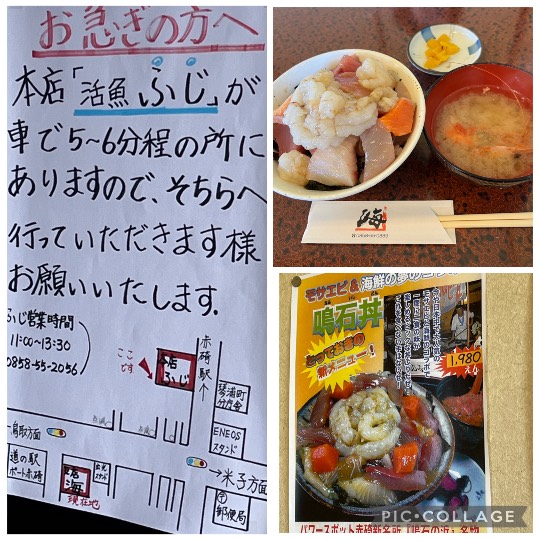 お急ぎの方へ
本店「活魚ふじ」が
車で5~6分程の所に
ありますので、そちらへ
行っていただきます様
お願いいたします.
ふじ営業時間
11:00~13:30
0858-55-2056
ここです
本店ふじ
赤碕駅
琴浦町
分庁舎
ENEOS
スタンド
鳥取方面
米子方面
道の駅
ポート赤碕
支店海
現在地
〒
郵便局
海
モサエビ&海鮮の夢の
鳴石丼
とっておきの
新メニュー!
1,980
えん
パワースポット赤碕新名所『鳴石の浜』名物
PIC•COLLAGE